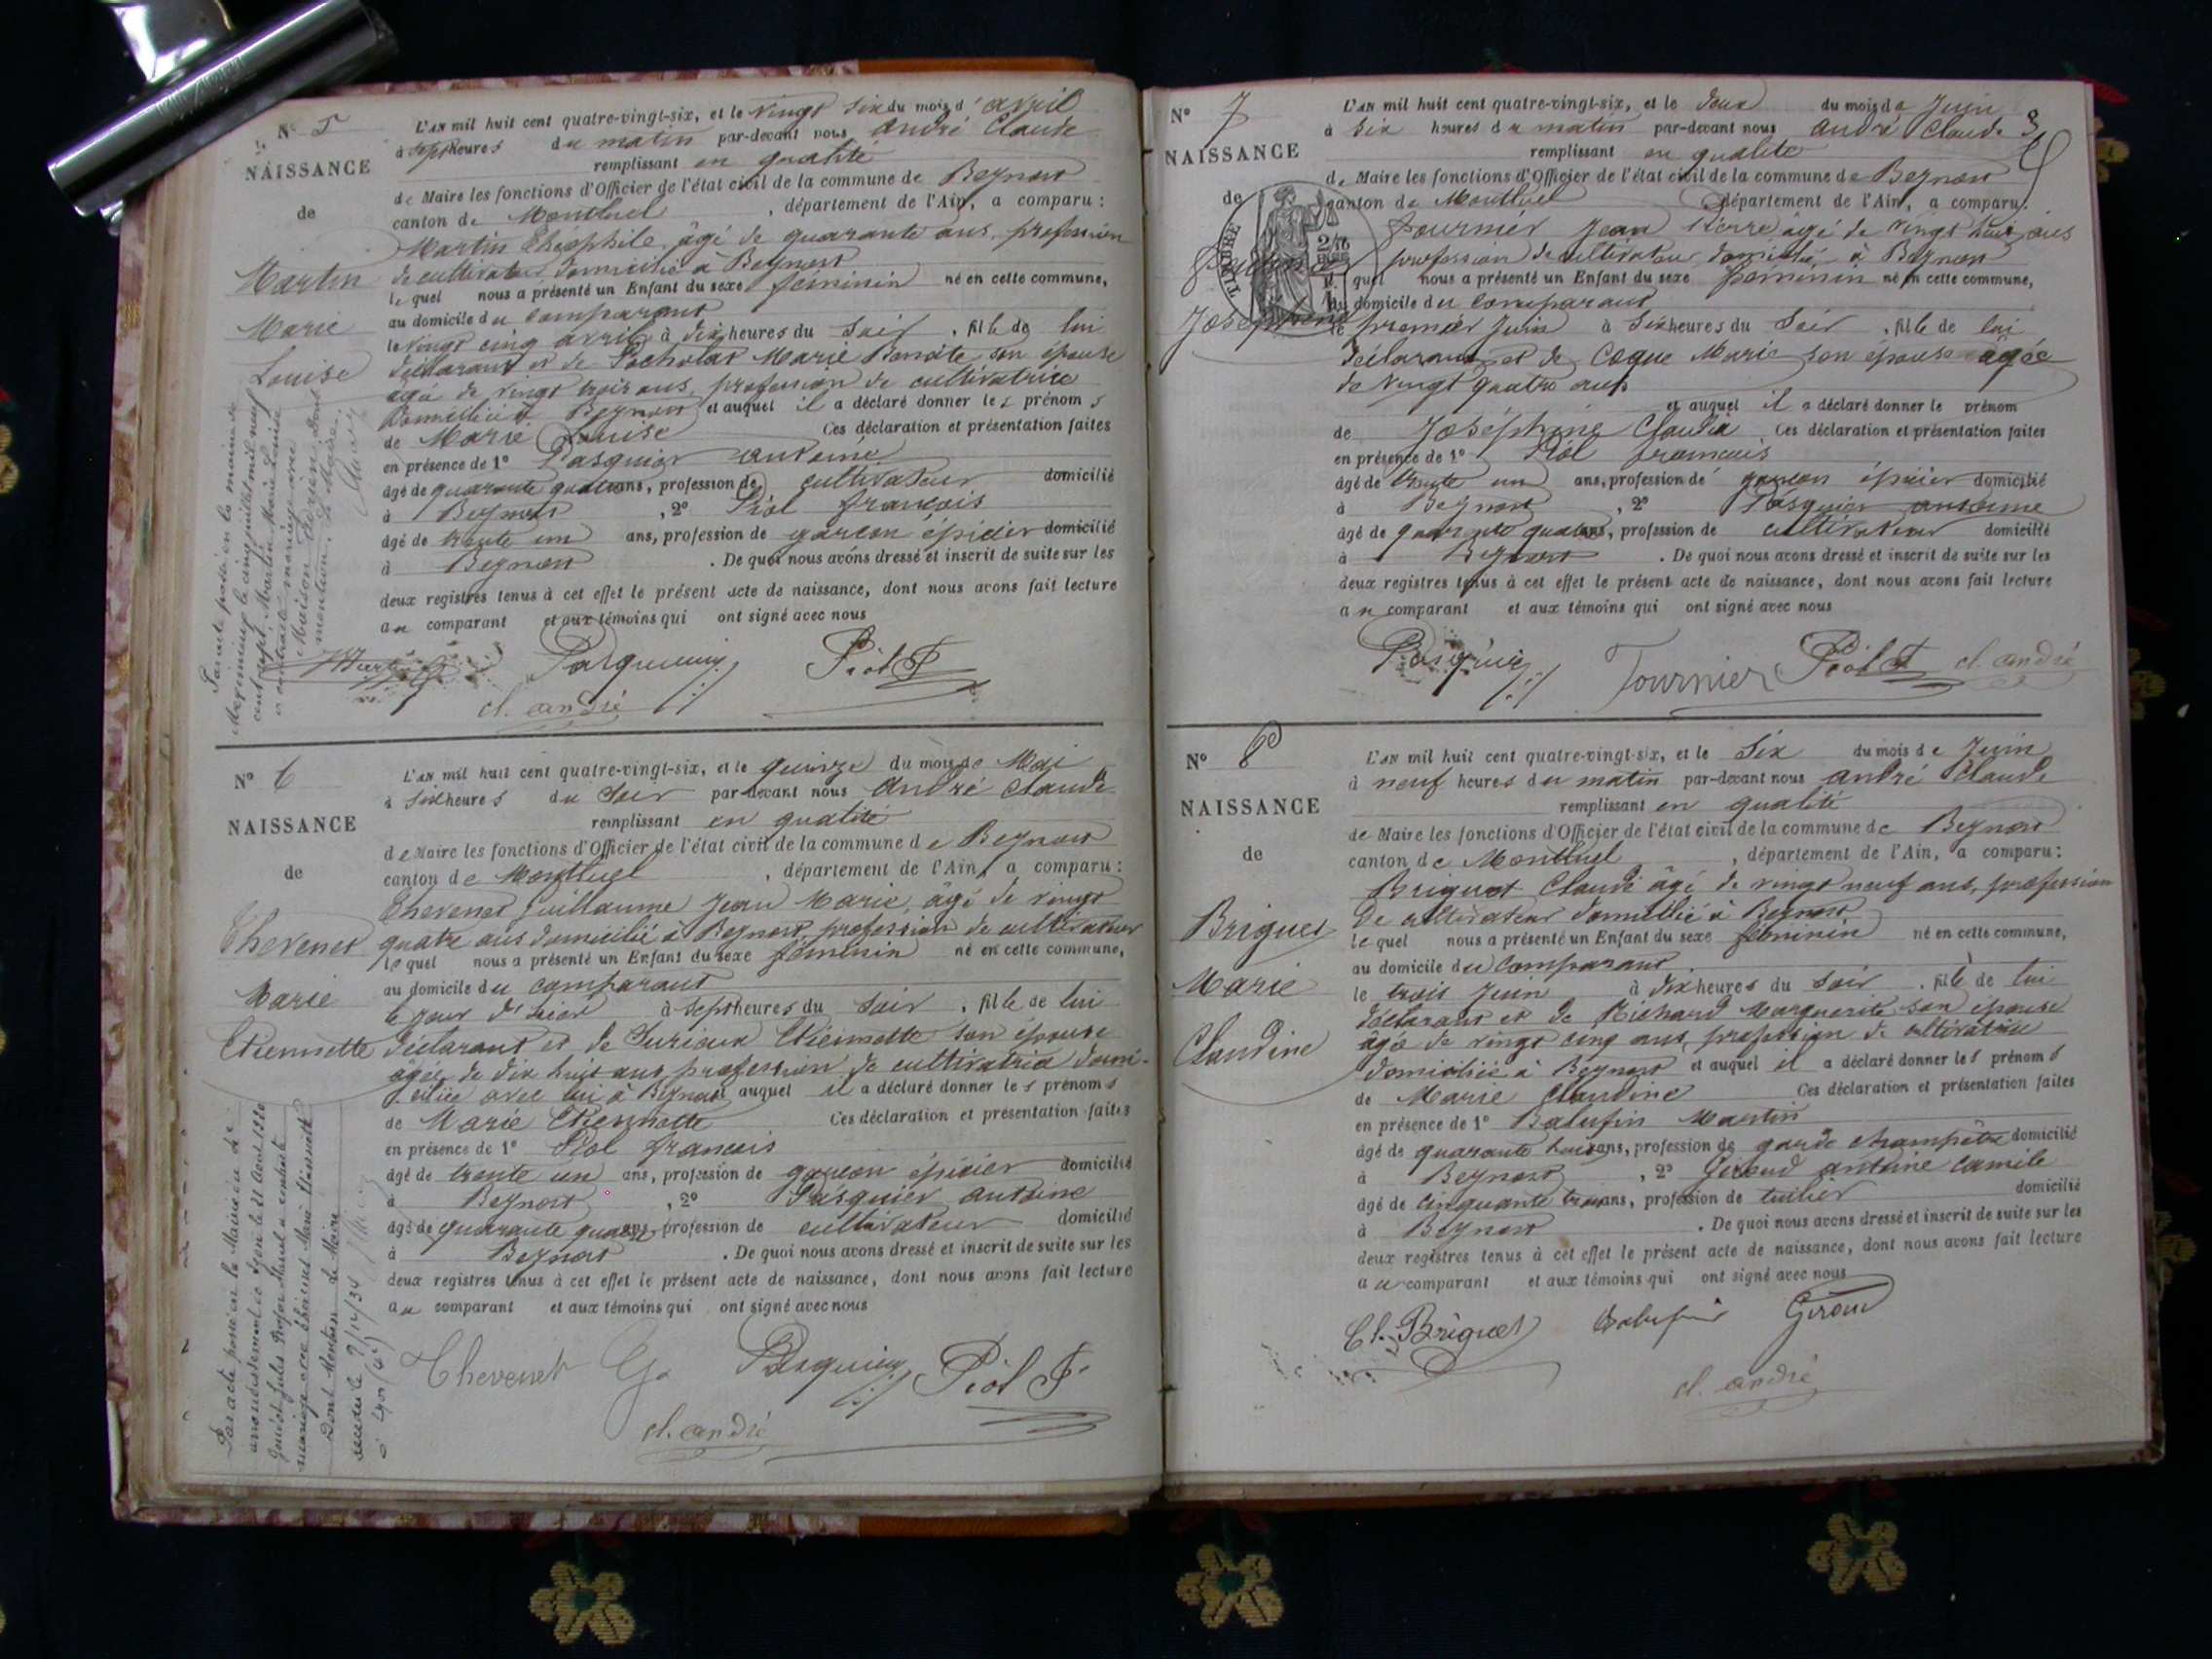 N° 5
NAISSANCE
de
Martin
Marie
Louise
L'AN mil huit cent quatre-vingt-six, et le vingt six du mois d'avril
à sept heures du matin par-devant nous André Claude
remplissant en qualité
de Maire les fonctions d'Officier de l'état civil de la commune de Beynost
canton de Montluel, département de l'Ain, a comparu :
Martin Théophile, âgé de quarante ans, profession
de cultivateur domicilié à Beynost
lequel nous a présenté un Enfant du sexe féminin né en cette commune,
au domicile du comparant
le vingt cinq avril à dix heures du soir, fille de lui
déclarant et de Marie Benoite son épouse
agé de vingt trois ans, profession de cultivatrice
domiciliée à Beynost et auquel il a déclaré donner les prénoms
de Marie Louise Ces déclaration et présentation faites
en présence de 1° Pasquier antoine
âgé de quarante quatre ans, profession de cultivateur domicilié
à Beynost, 2° Piol francois
âgé de trente un ans, profession de garcon épicier domicilié
à Beynost. De quoi nous avons dressé et inscrit de suite sur les
deux registres tenus à cet effet le présent acte de naissance, dont nous avons fait lecture
au comparant et aux témoins qui ont signé avec nous
Martin Pasquier Piol F
cl. andré
N° 6
NAISSANCE
de
Thevenet
Marie
Etiennette
L'AN mil huit cent quatre-vingt-six, et le quinze du mois de Mai
à six heures du soir par-devant nous André Claude
remplissant en qualité
de Maire les fonctions d'Officier de l'état civil de la commune de Beynost
canton de Montluel, département de l'Ain, a comparu :
Thevenet Guillaume Jean Marie, âgé de vingt
quatre ans domicilié à Beynost, profession de cultivateur
lequel nous a présenté un Enfant du sexe féminin né en cette commune,
au domicile du comparant
le jour d'hier à sept heures du soir, fille de lui
déclarant et de Surieux Etiennette son épouse
agée de dix huit ans profession de cultivatrice domi-
ciliée avec lui à Beynost auquel il a déclaré donner les prénoms
de Marie Etiennette Ces déclaration et présentation faites
en présence de 1° Piol francois
âgé de trente un ans, profession de garcon épicier domicilié
à Beynost, 2° Pasquier antoine
âgé de quarante quatre ans, profession de cultivateur domicilié
à Beynost. De quoi nous avons dressé et inscrit de suite sur les
deux registres tenus à cet effet le présent acte de naissance, dont nous avons fait lecture
au comparant et aux témoins qui ont signé avec nous
Thevenet G. Pasquier Piol F
cl. andré
N° 7
NAISSANCE
de
TIMBRE
Joséphine
L'AN mil huit cent quatre-vingt-six, et le deux du mois de Juin
à six heures du matin par-devant nous André Claude
remplissant en qualité
de Maire les fonctions d'Officier de l'état civil de la commune de Beynost
canton de Montluel département de l'Ain, a comparu :
fournier Jean Pierre âgé de vingt huit ans
profession de cultivateur domicilié à Beynost
quel nous a présenté un Enfant du sexe féminin né en cette commune,
au domicile du comparant
le premier Juin à six heures du soir, fille de lui
déclarant et de Coque Marie son épouse agée
de vingt quatre ans
et auquel il a déclaré donner le prénom
de Joséphine Claudia Ces déclaration et présentation faites
en présence de 1° Piol francois
âgé de trente un ans, profession de garcon épicier domicilié
à Beynost, 2° Pasquier antoine
âgé de quarante quatre ans, profession de cultivateur domicilié
à Beynost. De quoi nous avons dressé et inscrit de suite sur les
deux registres tenus à cet effet le présent acte de naissance, dont nous avons fait lecture
au comparant et aux témoins qui ont signé avec nous
Pasquier Fournier Piol F cl. andré
N° 8
NAISSANCE
de
Briguet
Marie
Claudine
L'AN mil huit cent quatre-vingt-six, et le six du mois de Juin
à neuf heures du matin par-devant nous André Claude
remplissant en qualité
de Maire les fonctions d'Officier de l'état civil de la commune de Beynost
canton de Montluel, département de l'Ain, a comparu :
Briguet Claude âgé de vingt neuf ans, profession
de cultivateur domicilié à Beynost,
lequel nous a présenté un Enfant du sexe féminin né en cette commune,
au domicile du comparant
le trois Juin à dix heures du soir, fille de lui
déclarant et de Richard Marguerite son épouse
âgée de vingt cinq ans, profession de cultivatrice
domiciliée à Beynost et auquel il a déclaré donner les prénoms
de Marie Claudine Ces déclaration et présentation faites
en présence de 1° Balufin Martin
âgé de quarante huit ans, profession de garde champêtre domicilié
à Beynost, 2° Geroud antoine camile
âgé de cinquante trois ans, profession de tuilier domicilié
à Beynost. De quoi nous avons dressé et inscrit de suite sur les
deux registres tenus à cet effet le présent acte de naissance, dont nous avons fait lecture
au comparant et aux témoins qui ont signé avec nous
Cl. Briguet Balufin Geroud
cl. andré